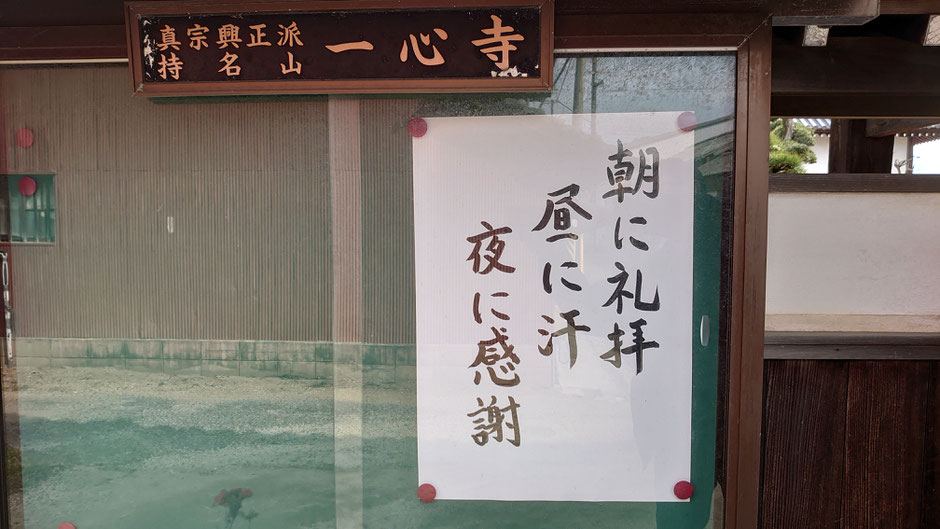 真宗興正派
持名山
一心寺
朝に礼拝
昼に汗
夜に感謝